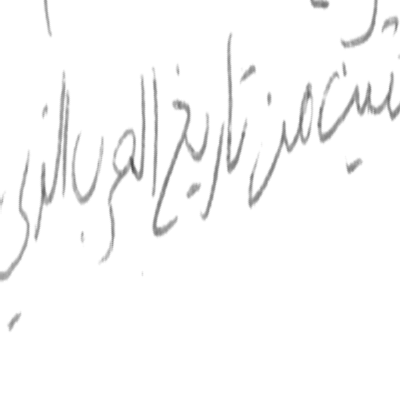 من تاريخ العرب الذي